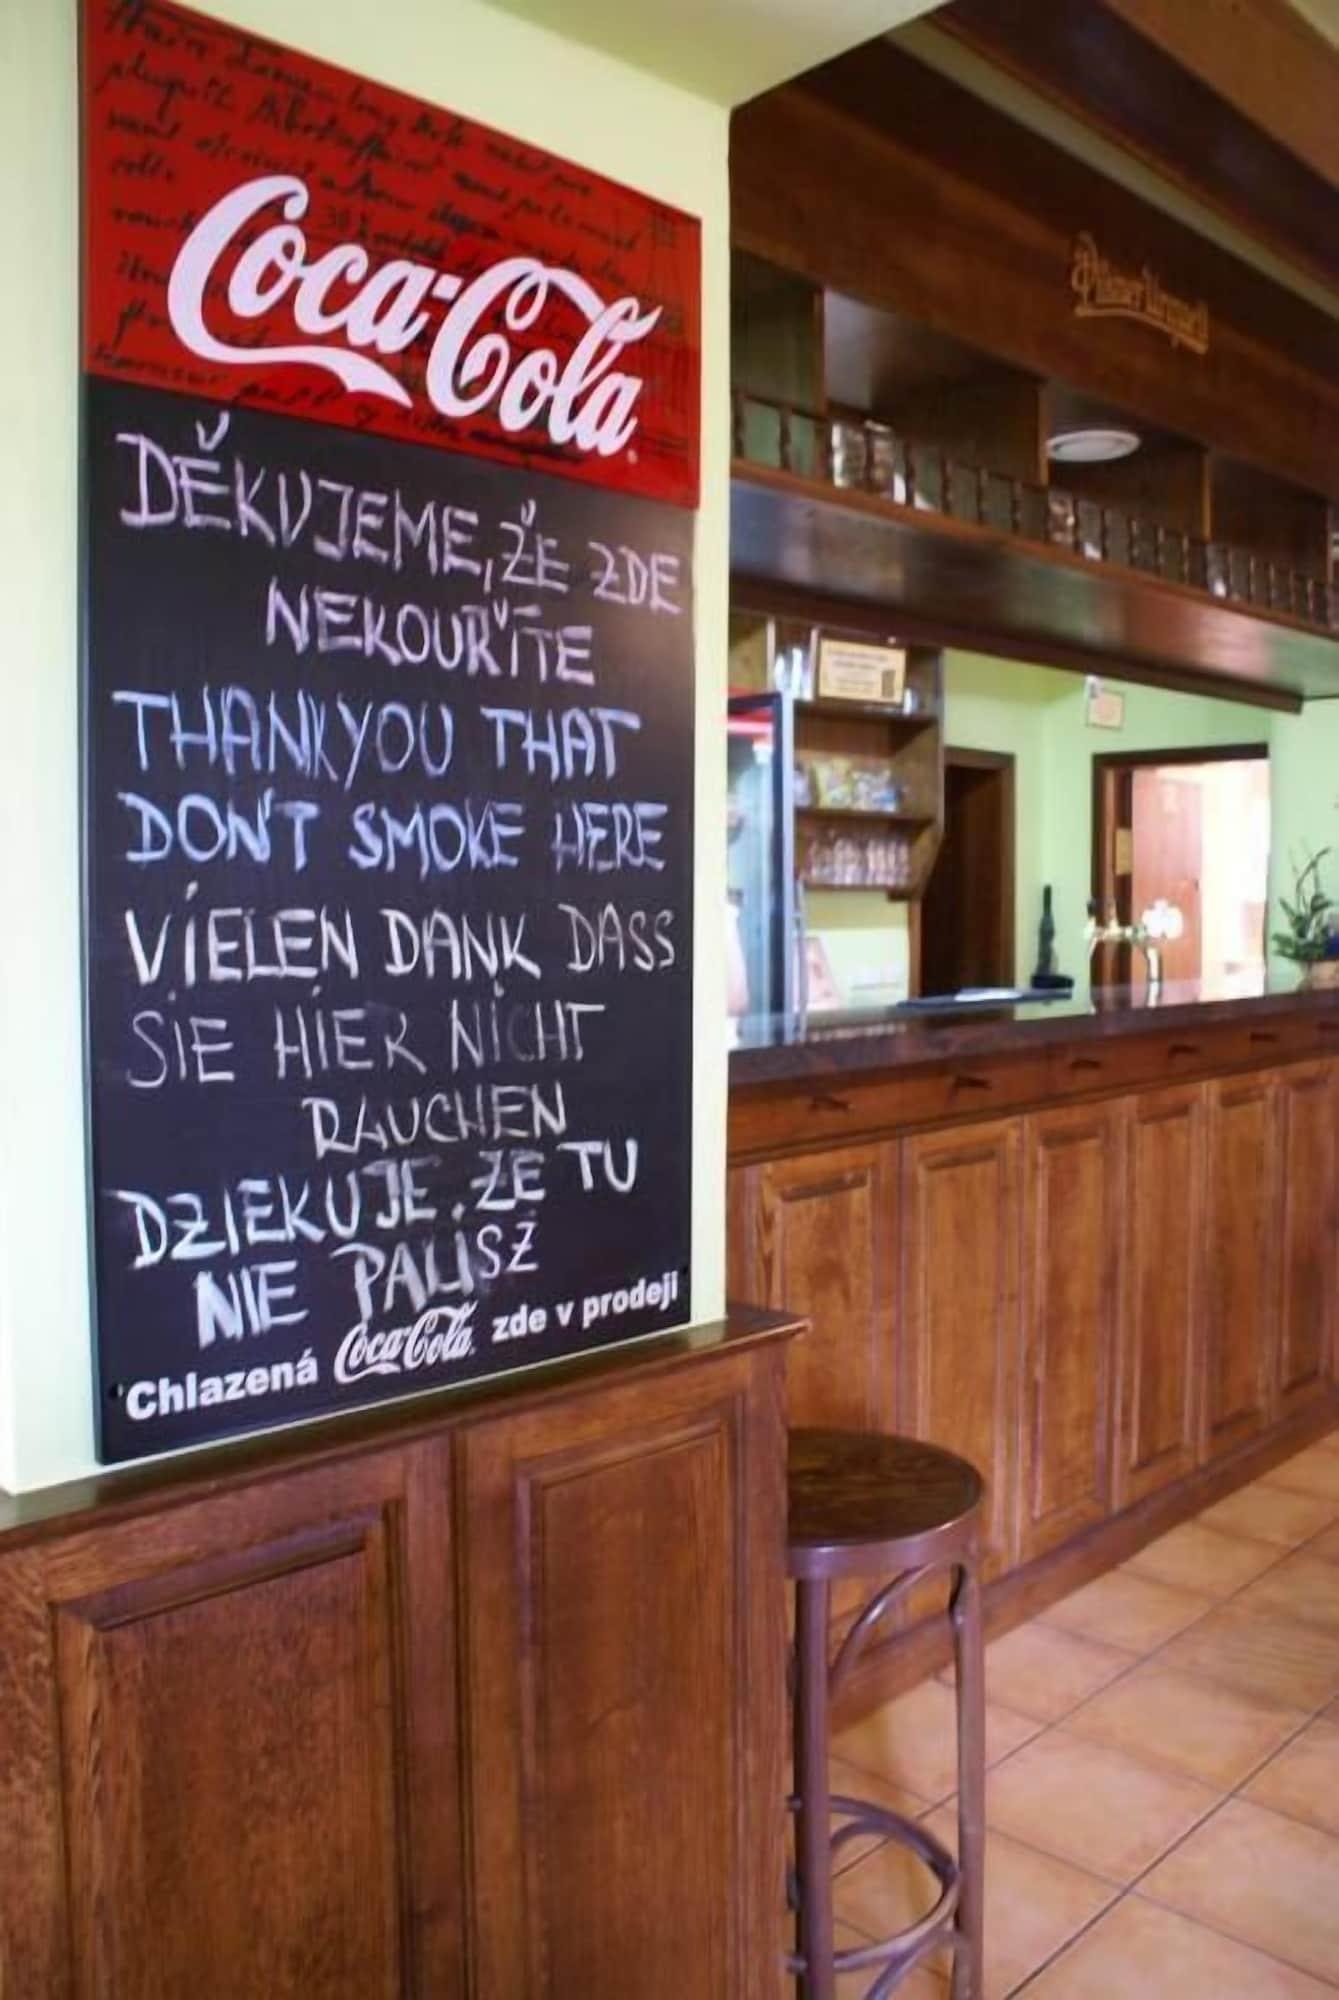 Coca-Cola
DĚKUJEME, ŽE ZDE
NEKOUŘÍTE
THANK YOU THAT
DON'T SMOKE HERE
VIELEN DANK DASS
SIE HIER NICHT
RAUCHEN
DZIEKUJE. ZE TU
NIE PALISZ
Chlazená Coca-Cola zde v prodeji
Pilsner Urquell